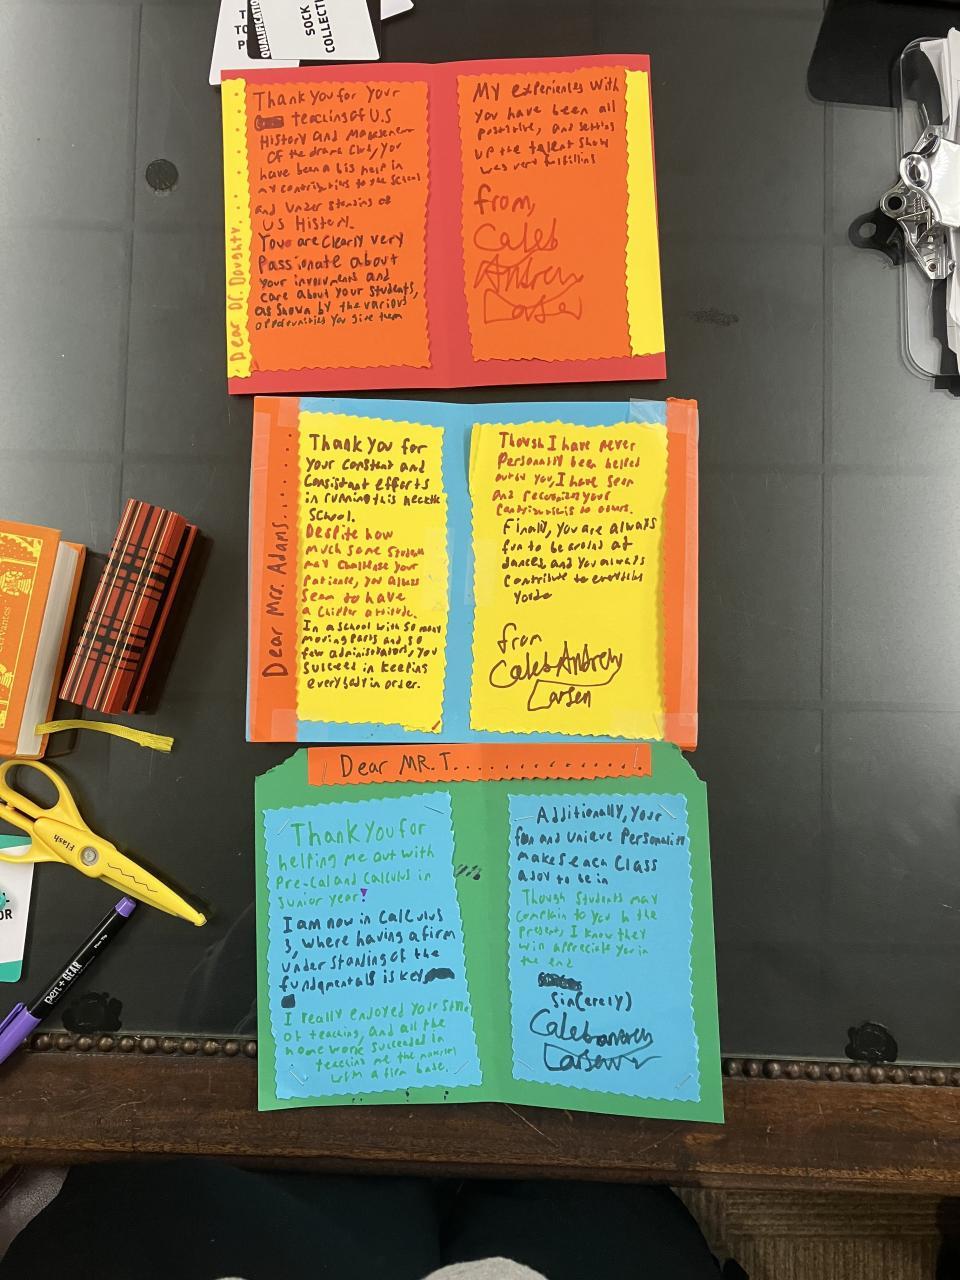 QUALIFICATIO
SOCK
COLLECT
Dear Dr. Doughty....
Thank you for your
teaching of U.S
History and Management
Of the drama club, you
have been a big help in
my contributions to the School
and understanding of
US History.
You are clearly very
Passionate about
your involvments and
care about your students,
as shown by the various
opportunities you give them
My experiences with
you have been all
positive, and setting
up the talent show
was very fulfilling
from,
Caleb
Andrew
Larsen
Dear Mrs. Adams......
Thank you for
your constant and
consistant efforts
in running this hectic
School.
Despite how
much some students
may challenge your
Patience, you always
Seem to have
a chipper attitude.
In a school with so many
moving parts and so
few administrators, you
succeed in keeping
everybody in order.
Though I have never
Personally been helped
out by you, I have seen
and recognize your
contributions to others.
Finally, you are always
fun to be around at
dances, and you always
contribute to everybodys
from
Caleb Andrew
Larsen
Cervantes
Dear MR. T................
Thank you for
helping me out with
Pre-Cal and Calculus in
Junior year!
I am now in Calculus
3, where having a firm
understanding of the
fundamentals is key
I really enjoyed your style
of teaching, and all the
home work succeeded in
teaching me the material
with a firm base.
Additionally, your
fun and unique Personality
makes each Class
a joy to be in
Though Students may
complain to you in the
Present, I know they
will appreciate you in
the end
Sincerely)
Caleb andrew
Larsen
Flash
pen+GEAR
OR